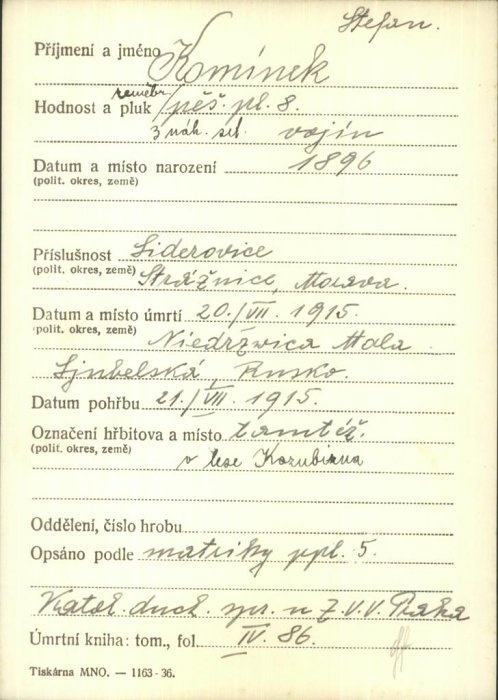 Stefan.
Příjmení a jméno Komínek
zeměbr.
Hodnost a pluk pěš. pl. 8.
3 náh. set. vojín
Datum a místo narození 1896
(polit. okres, země)
Příslušnost Siderovice
(polit. okres, země) Strážnice, Morava.
Datum a místo úmrtí 20./VII. 1915.
(polit. okres, země) Niedržwica Mala
Ljubelská, Rusko.
Datum pohřbu 21./VII. 1915.
Označení hřbitova a místo tamtéž.
(polit. okres, země) v lese
Oddělení, číslo hrobu
Opsáno podle matriky ppl. 5.
Katol. duch. spr. u Z. V. V. Praha
Úmrtní kniha: tom., fol. IV. 86.
Tiskárna MNO. — 1163-36.